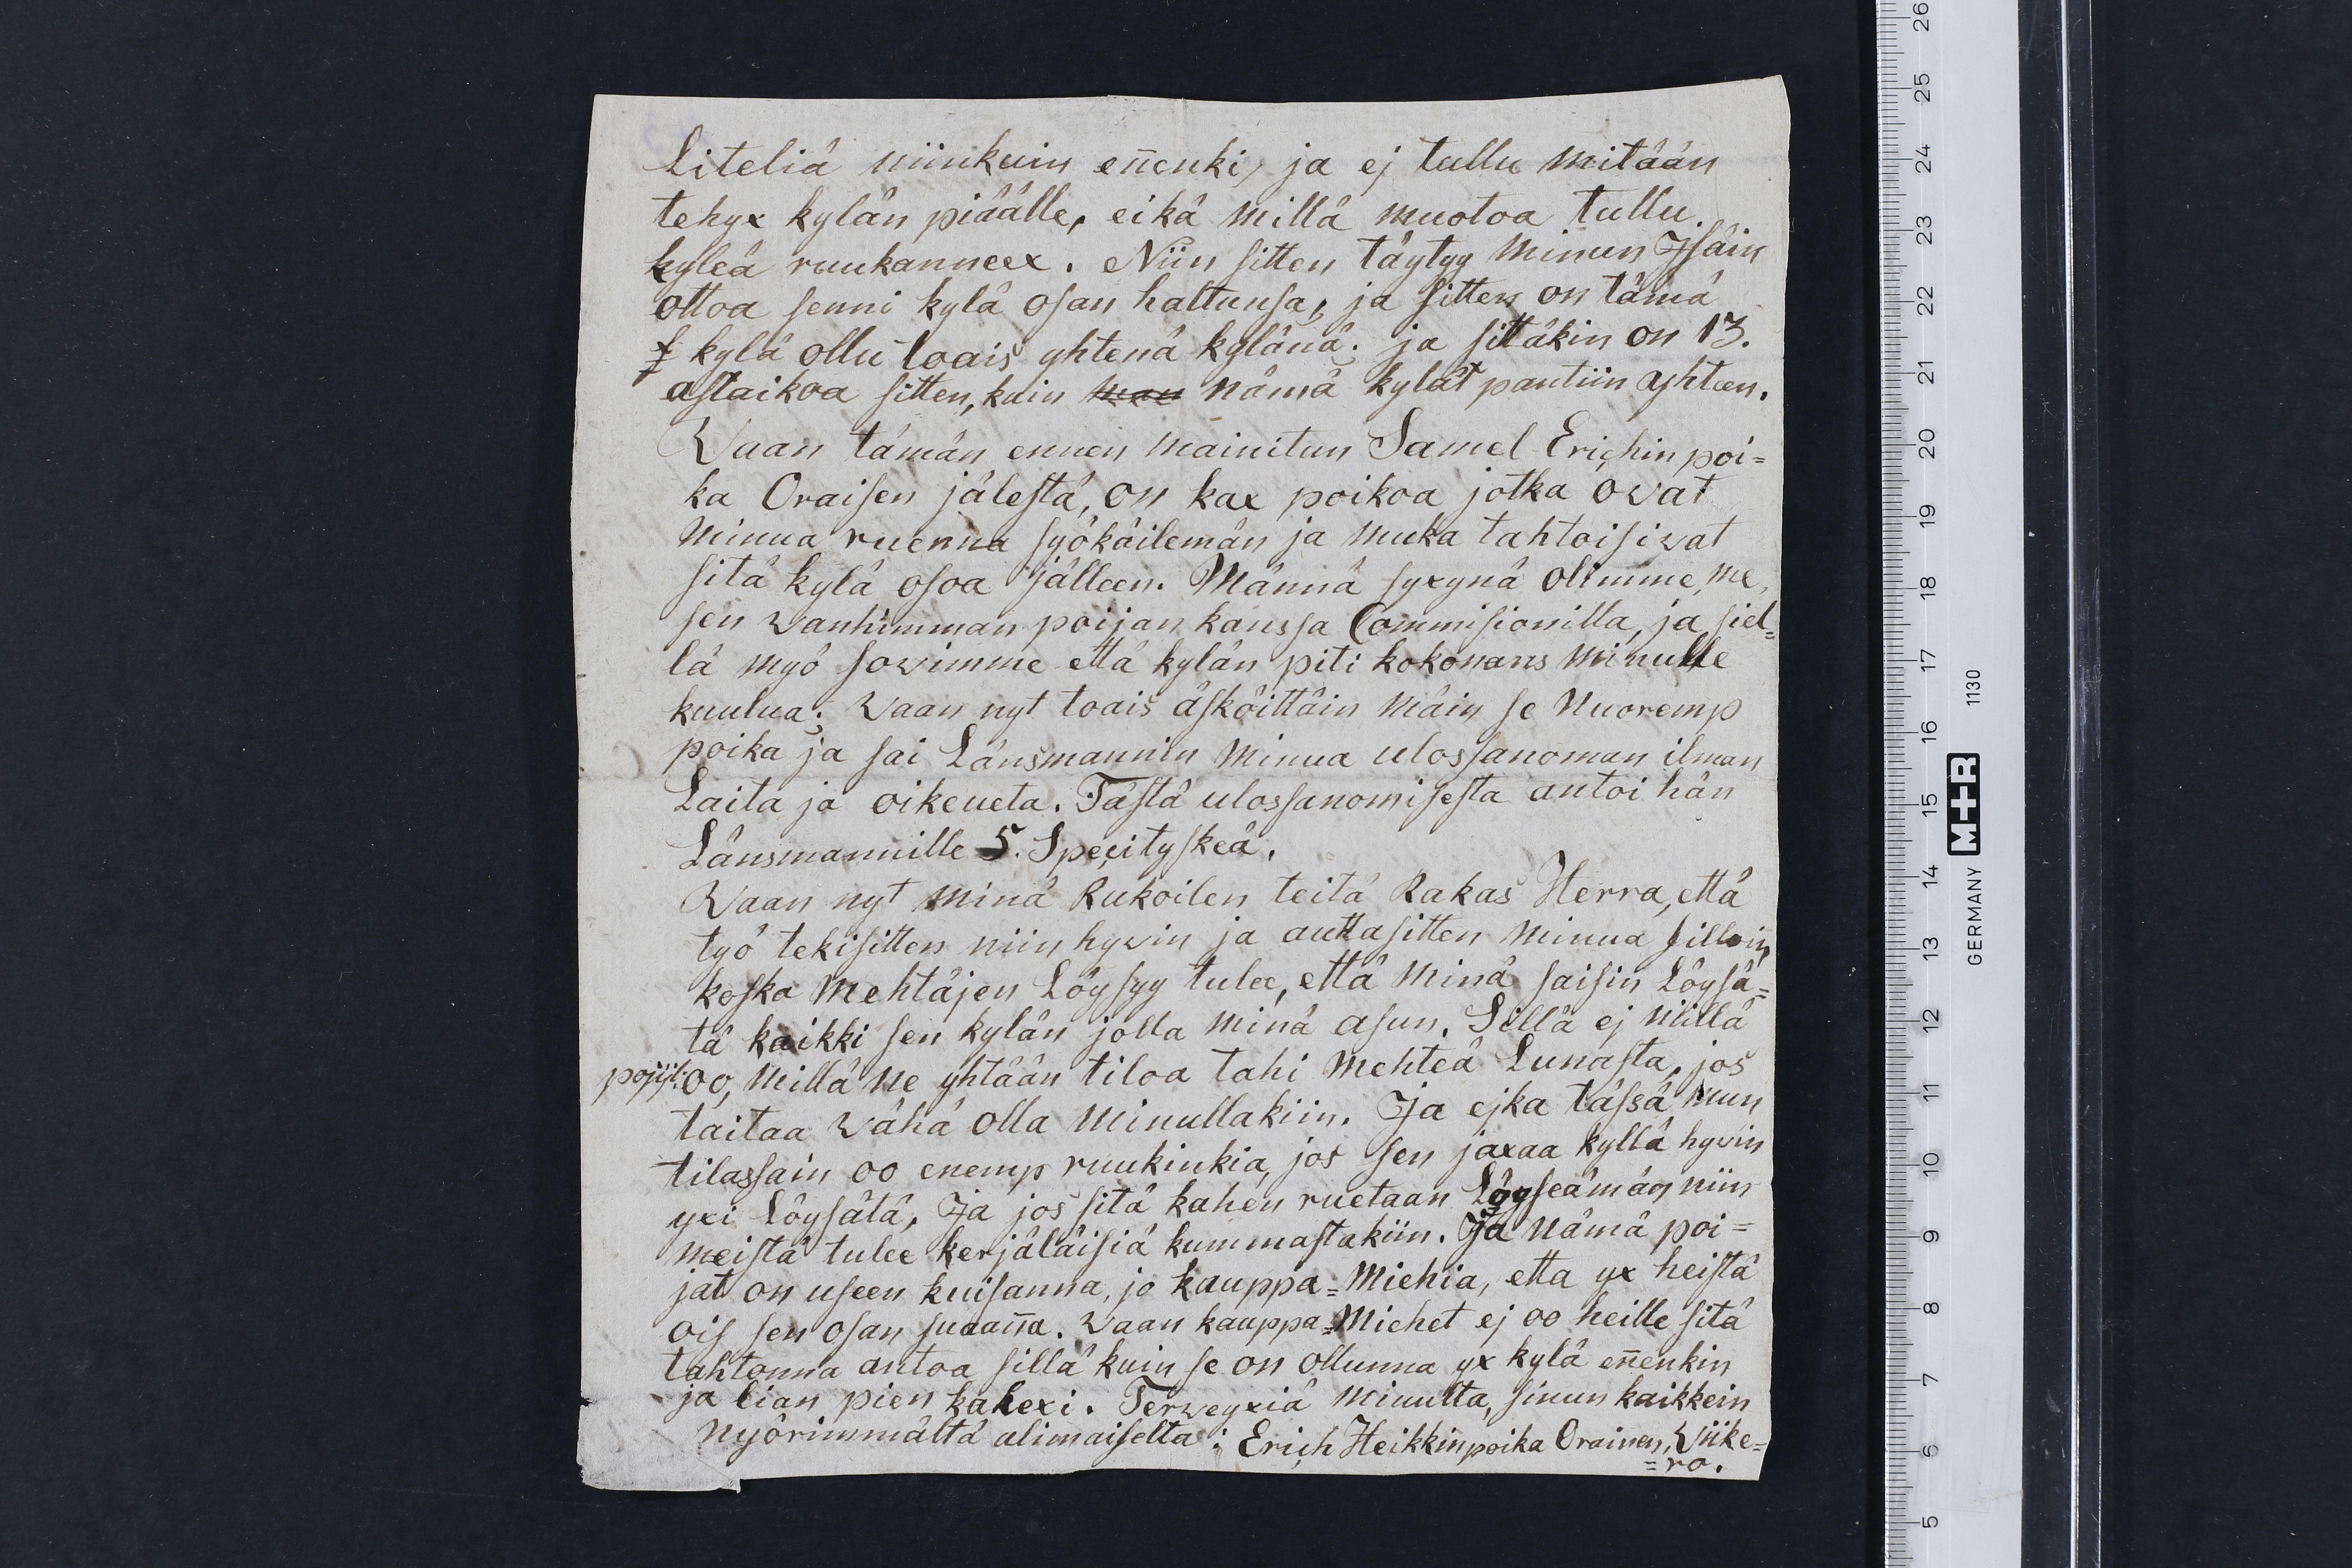 Liteliä niinkuin eñenki, ja ej tullu mitään
tehyx kylän piäälle, eikä millä muotoa tullu
kyleä ruukanneex. Niin sitten täytyy minun Isäin
ottoa senni kylä osan haltunsa, ja sitten on tämä
kylä ollu toais yhtenä kylänä: ja sittäkin on 13.
astaikoa sitten, kuin nämä kylät pantiin yhteen.
Vaan tämän ennen mainitun Samel Erichin poi=
ka Oraisen jälestä, on kax poikoa jotka ovat
minua ruenna syökäilemän ja muka tahtoisivat
sitä kylä osoa jälleen. Männä syxynä olimme, me,
sen vanhimman poijan kanssa Commisionilla, ja siel=
lä myö sovimme että kylän piti kokonans minulle
kuulua; vaan nyt toais äsköittäin mäin se nuoremp
poika ja sai Länsmannin minua ulossanoman ilman
Laita ja oikeueta. Tästä ulossanomisesta antoi hän
Länsmannille 5. Specityskeä.
Vaan nyt minä Rukoilen teitä Rakas Herra, että
työ tekisitten niin hyvin ja auttasitten minua silloin,
koska mehtäjen Löysyy tulee, että minä saisin Löysä=
tä kaikki sen kylän jolla minä asun. Sillä ej niillä
pojijl: oo, millä ne yhtään tiloa tahi mehteä Lunasta, jos
taitaa vähä olla minullakiin. Ja ejka tässä mun
tilassain oo enemp ruukinkia, jos sen jaxaa kyllä hyvin
yxi Löysätä. Ja jos sitä kahen ruetaan Löyseämän niin
meistä tulee kerjäläisiä kummastakiin. Ja nämä poi=
jat on useen kuisanna, jo kauppa=Miehia, etta yx heistä
ois sen osan suaaña. Vaan kauppa=Miehet ej oo heille sitä
tahtonna antoa sillä kuin se on ollunna yx kylä eñenkin
ja lian pien kahexi. Terveyxiä minulta, sinun kaikkein
nyörimmältä alimaiselta: Erich Heikkin poika Orainen, Viike=
=ro.
5 6 7 8 9 10 11 12 13 14 15 16 17 18 19 20 21 22 23 24 25 26
GERMANY M+R 1130